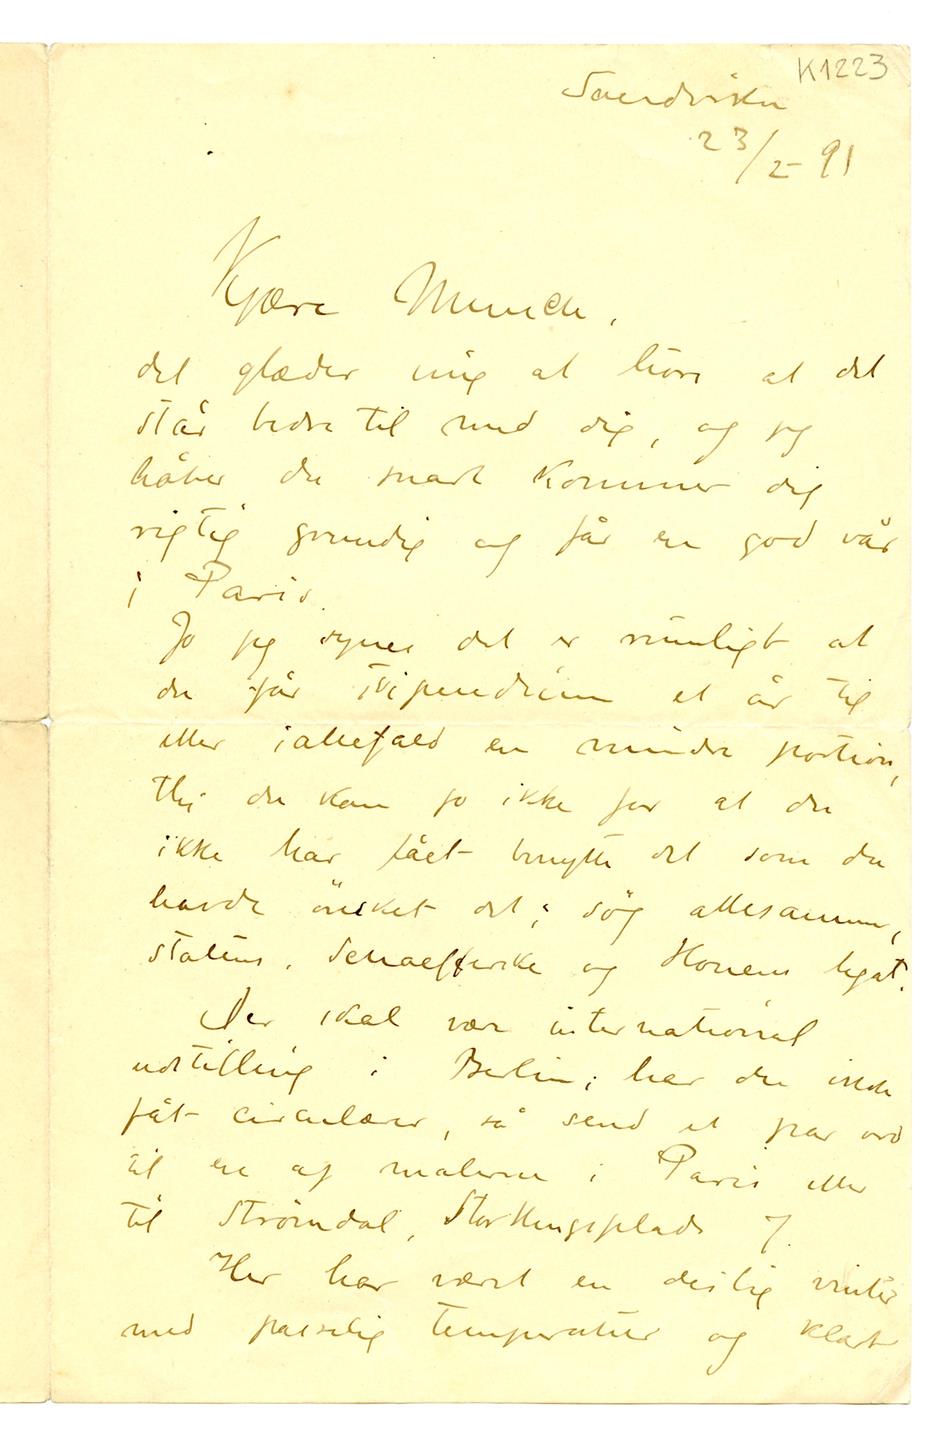 K1223
Sandviken
23/2 91
Kjære Munch.
det glæder mig at høre at det
står bedre til med dig, og jeg
håber du snart kommer dig
rigtig grundig og får en god vår
i Paris.
Jo jeg synes det er rimeligt at
du får stipendium et år til
eller iallefald en mindre portion,
thi du kan jo ikke for at du
ikke har fået benytte det som du
havde önsket det; søg allesammen,
statens, Schaefferske og Honens legat.
Der skal være international
udstilling i Berlin; har du ikke
fåt circulærer, så send et par ord
til en af malerne i Paris eller
til Strømdal, Storthingsplads 7.
Her har været en deilig vinter
med passelig temperatur og klart